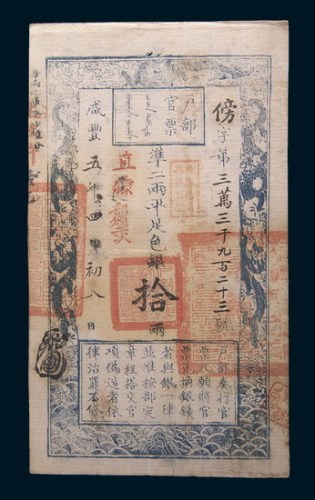 戶部
官票
傍字第三萬三千九百二十三號
準二兩平足色銀拾兩
咸豐五年四月初八日
戶部奏行官
票凡願將官
票兌換銀錢
者與銀一律
並准按部定
章程搭交官
項偽造者依
律治罪不貸